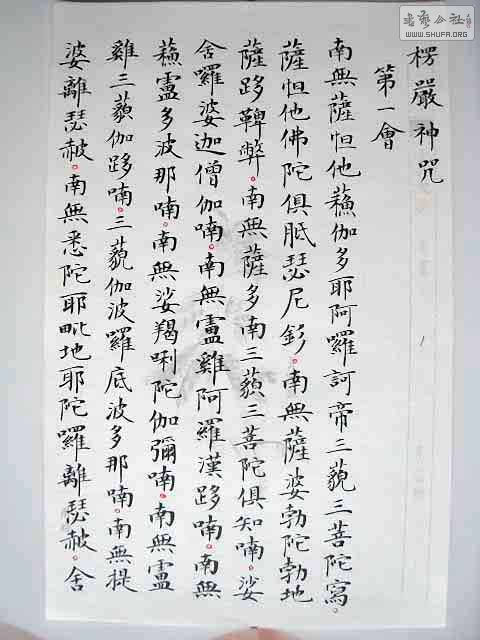 楞嚴神咒
第一會
南無薩怛他蘓伽多耶阿羅訶帝三藐三菩陀寫。
薩怛他佛陀俱胝瑟尼釤。南無薩婆勃陀勃地
薩跢鞞弊。南無薩多南三藐三菩陀俱知喃。娑
舍囉婆迦僧伽喃。南無盧雞阿羅漢跢喃。南無
蘓盧多波那喃。南無娑羯唎陀伽彌喃。南無盧
雞三藐伽跢喃。三藐伽波囉底波多那喃。南無提
婆離瑟赧。南無悉陀耶毗地耶陀囉離瑟赧。舍
書藝公社
WWW.SHUFA.ORG